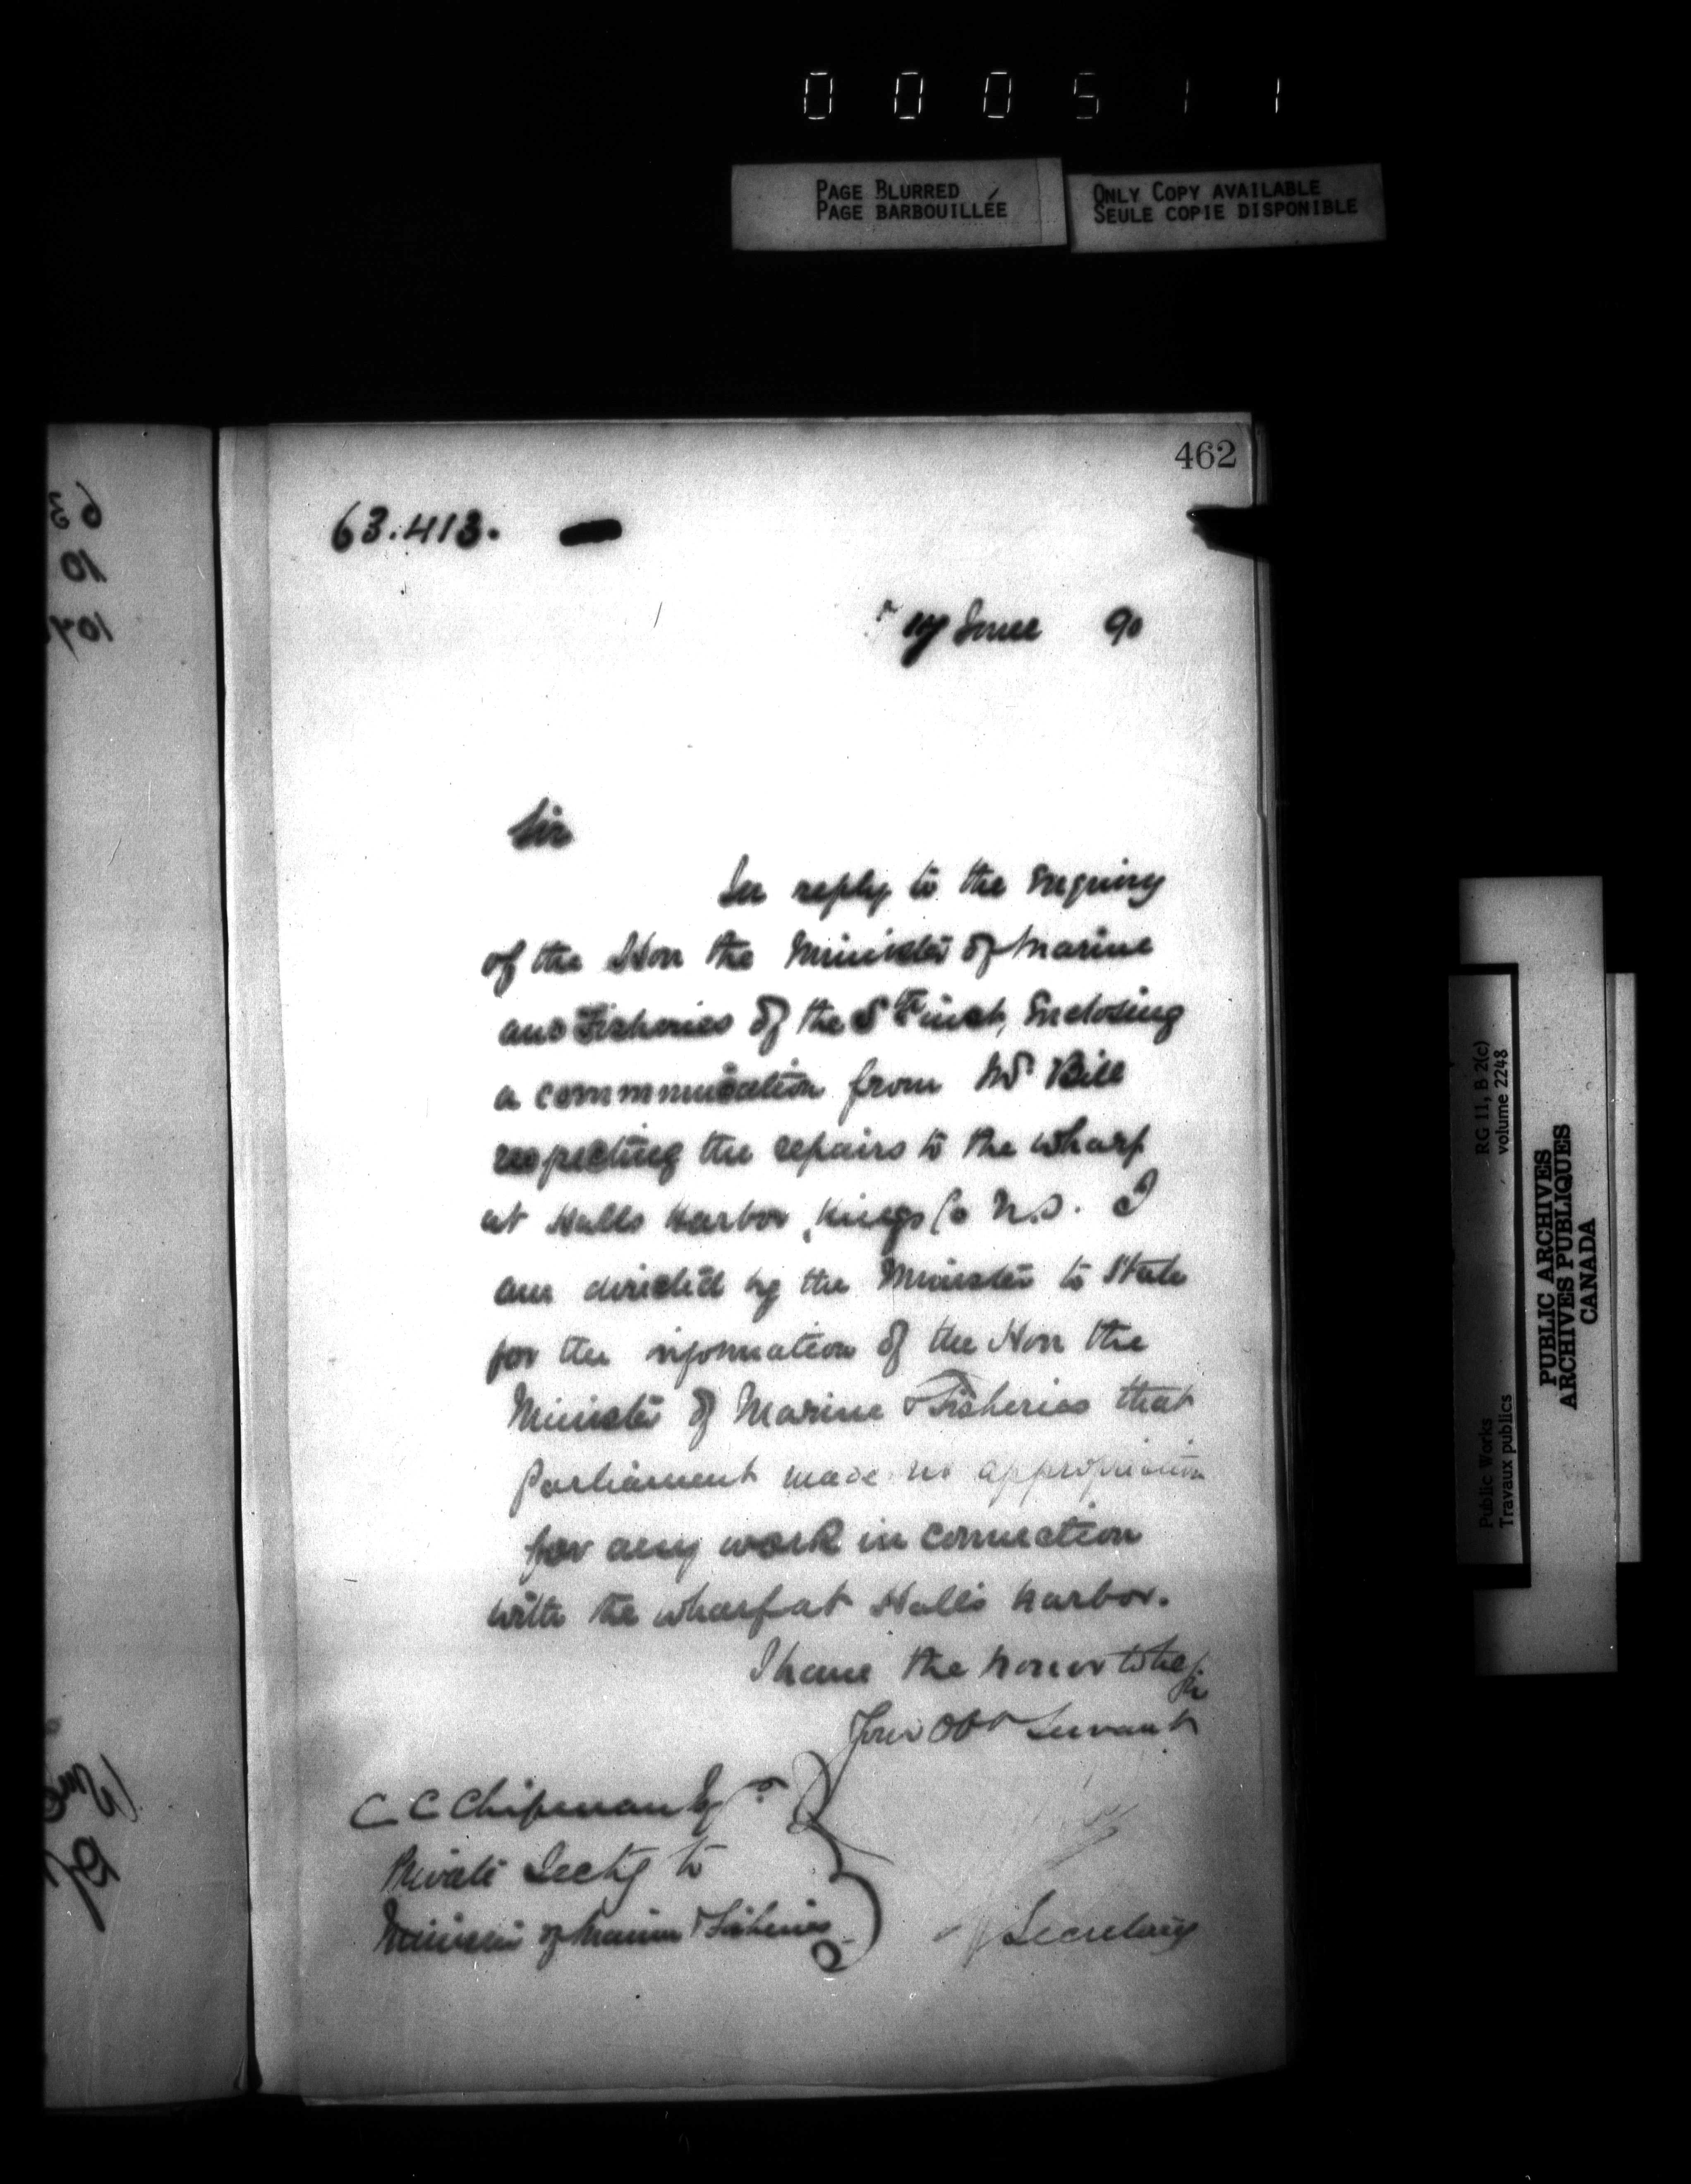 000511
PAGE BLURRED
PAGE BARBOUILLÉE
ONLY COPY AVAILABLE
SEULE COPIE DISPONIBLE
462
63.413.
June 90
Sir
In reply to the enquiry
of the Hon the Minister of Marine
and Fisheries of the 5th inst, enclosing
a communication from Mr Bill
respecting the repairs to the wharf
at Halls Harbor, Kings Co N.S. I
am directed by the Minister to state
for the information of the Hon the
Minister of Marine & Fisheries that
Parliament made no appropriation
for any work in connection
with the wharf at Halls Harbor.
I have the honor to be
Sir
Your Obt Servant
C C Chipman Esq
Private Secty to
Minister of Marine & Fisheries
Secretary
RG 11, B 2(c)
volume 2248
Public Works
Travaux publics
PUBLIC ARCHIVES
ARCHIVES PUBLIQUES
CANADA